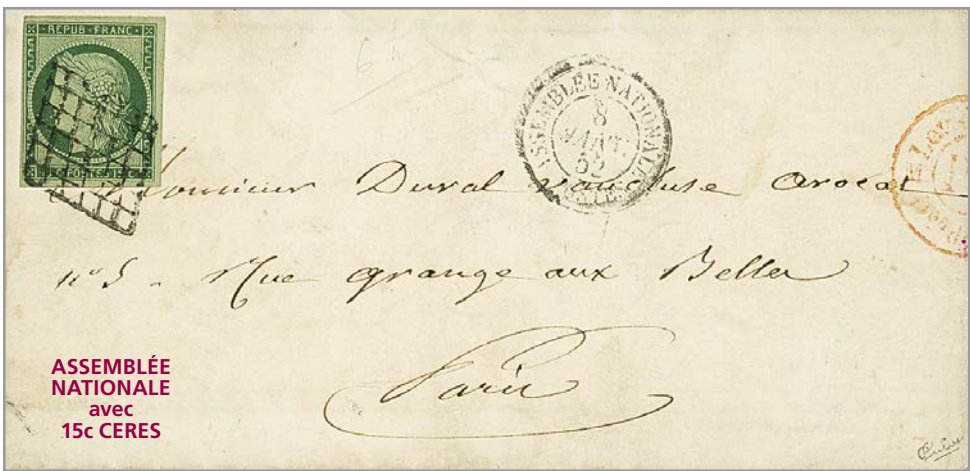 REPUB·FRANC·
15 c POSTES 15 c
ASSEMBLÉE NATIONALE
8
JANV.
Monsieur Duval Vaucluse avocat
n° 5 - Rue grange aux Belles
Paris
ASSEMBLÉE
NATIONALE
avec
15c CERES